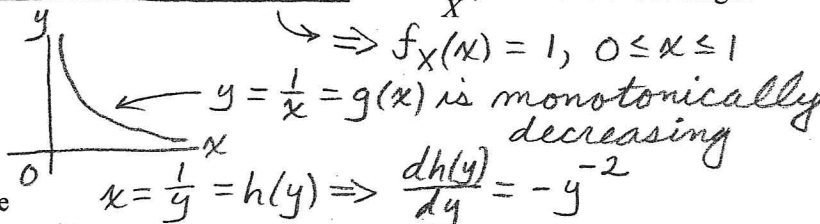 X
y ⇒ f_X(x) = 1, 0 ≤ x ≤ 1
y = 1/x = g(x) is monotonically
decreasing
x
0
e x = 1/y = h(y) ⇒ dh(y)/dy = -y^-2